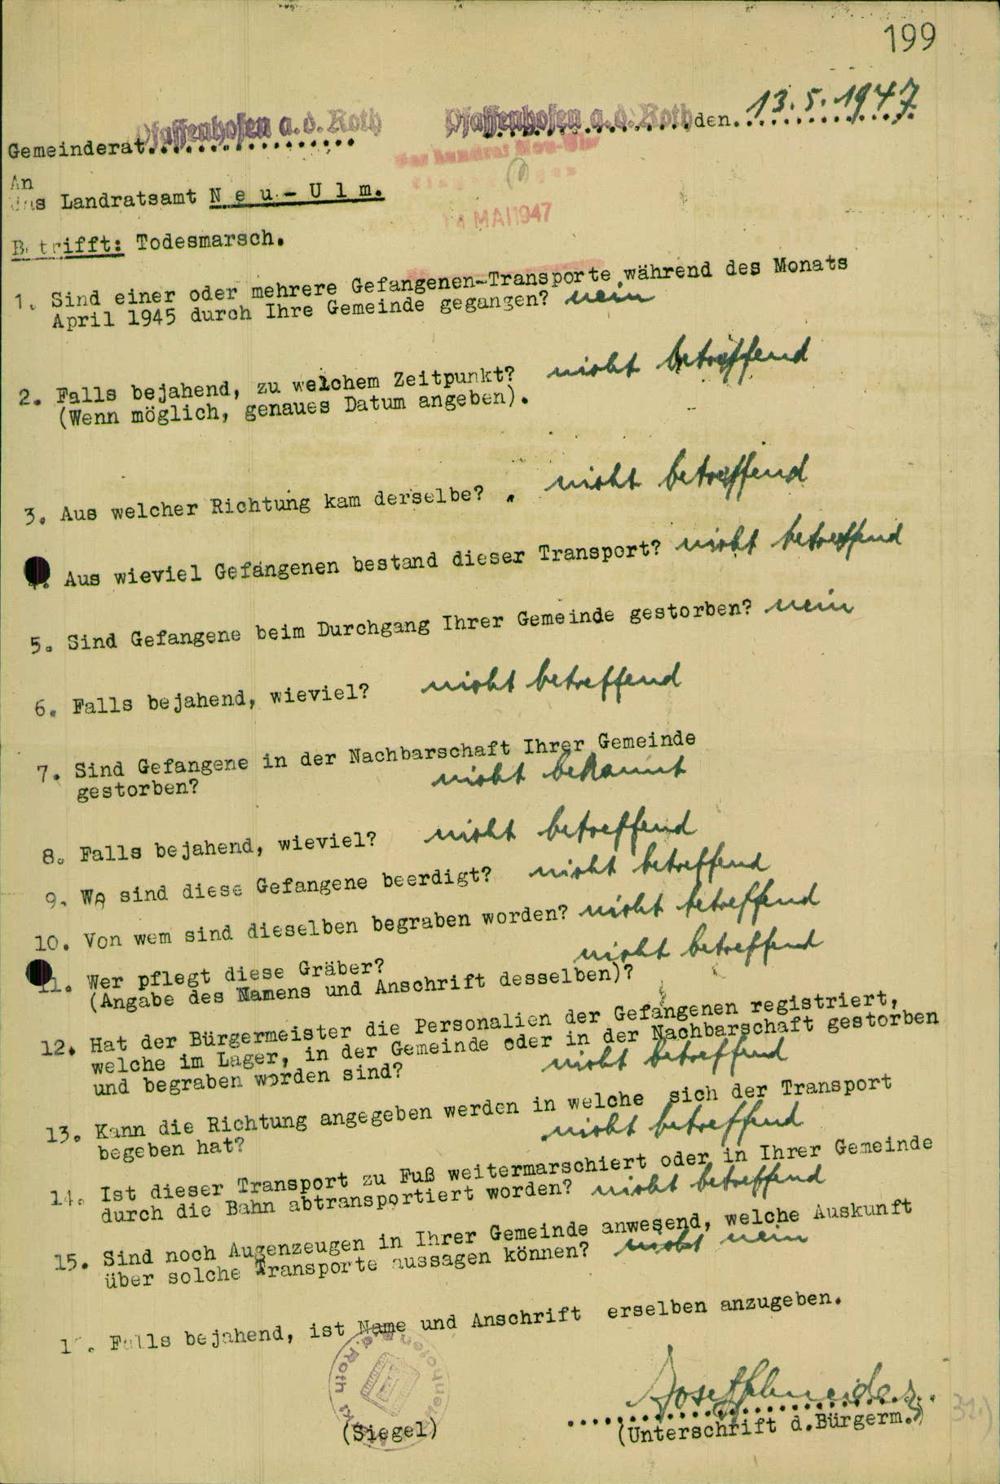 199
Pfaffenhofen a.d. Roth Pfaffenhofen a.d. Roth, den 13.5.1947
Gemeinderat
Der Landrat Neu-Ulm
An
das Landratsamt Neu-Ulm.
14 MAI 1947
Betrifft: Todesmarsch.
1. Sind einer oder mehrere Gefangenen-Transporte während des Monats
April 1945 durch Ihre Gemeinde gegangen? nein
2. Falls bejahend, zu welchem Zeitpunkt? nicht betreffend
(Wenn möglich, genaues Datum angeben).
3. Aus welcher Richtung kam derselbe? nicht betreffend
4. Aus wieviel Gefangenen bestand dieser Transport? nicht betreffend
5. Sind Gefangene beim Durchgang Ihrer Gemeinde gestorben? nein
6. Falls bejahend, wieviel? nicht betreffend
7. Sind Gefangene in der Nachbarschaft Ihrer Gemeinde
gestorben? nicht bekannt
8. Falls bejahend, wieviel? nicht betreffend
9. Wo sind diese Gefangene beerdigt? nicht betreffend
10. Von wem sind dieselben begraben worden? nicht betreffend
11. Wer pflegt diese Gräber? nicht betreffend
(Angabe des Namens und Anschrift desselben)?
12. Hat der Bürgermeister die Personalien der Gefangenen registriert,
welche im Lager, in der Gemeinde oder in der Nachbarschaft gestorben
und begraben worden sind? nicht betreffend
13. Kann die Richtung angegeben werden in welche sich der Transport
begeben hat? nicht betreffend
14. Ist dieser Transport zu Fuß weitermarschiert oder in Ihrer Gemeinde
durch die Bahn abtransportiert worden? nicht betreffend
15. Sind noch Augenzeugen in Ihrer Gemeinde anwesend, welche Auskunft
über solche Transporte aussagen können? nicht nein
1 . Falls bejahend, ist Name und Anschrift erselben anzugeben.
Josef Schneider
(Siegel) (Unterschrift d.Bürgerm.)